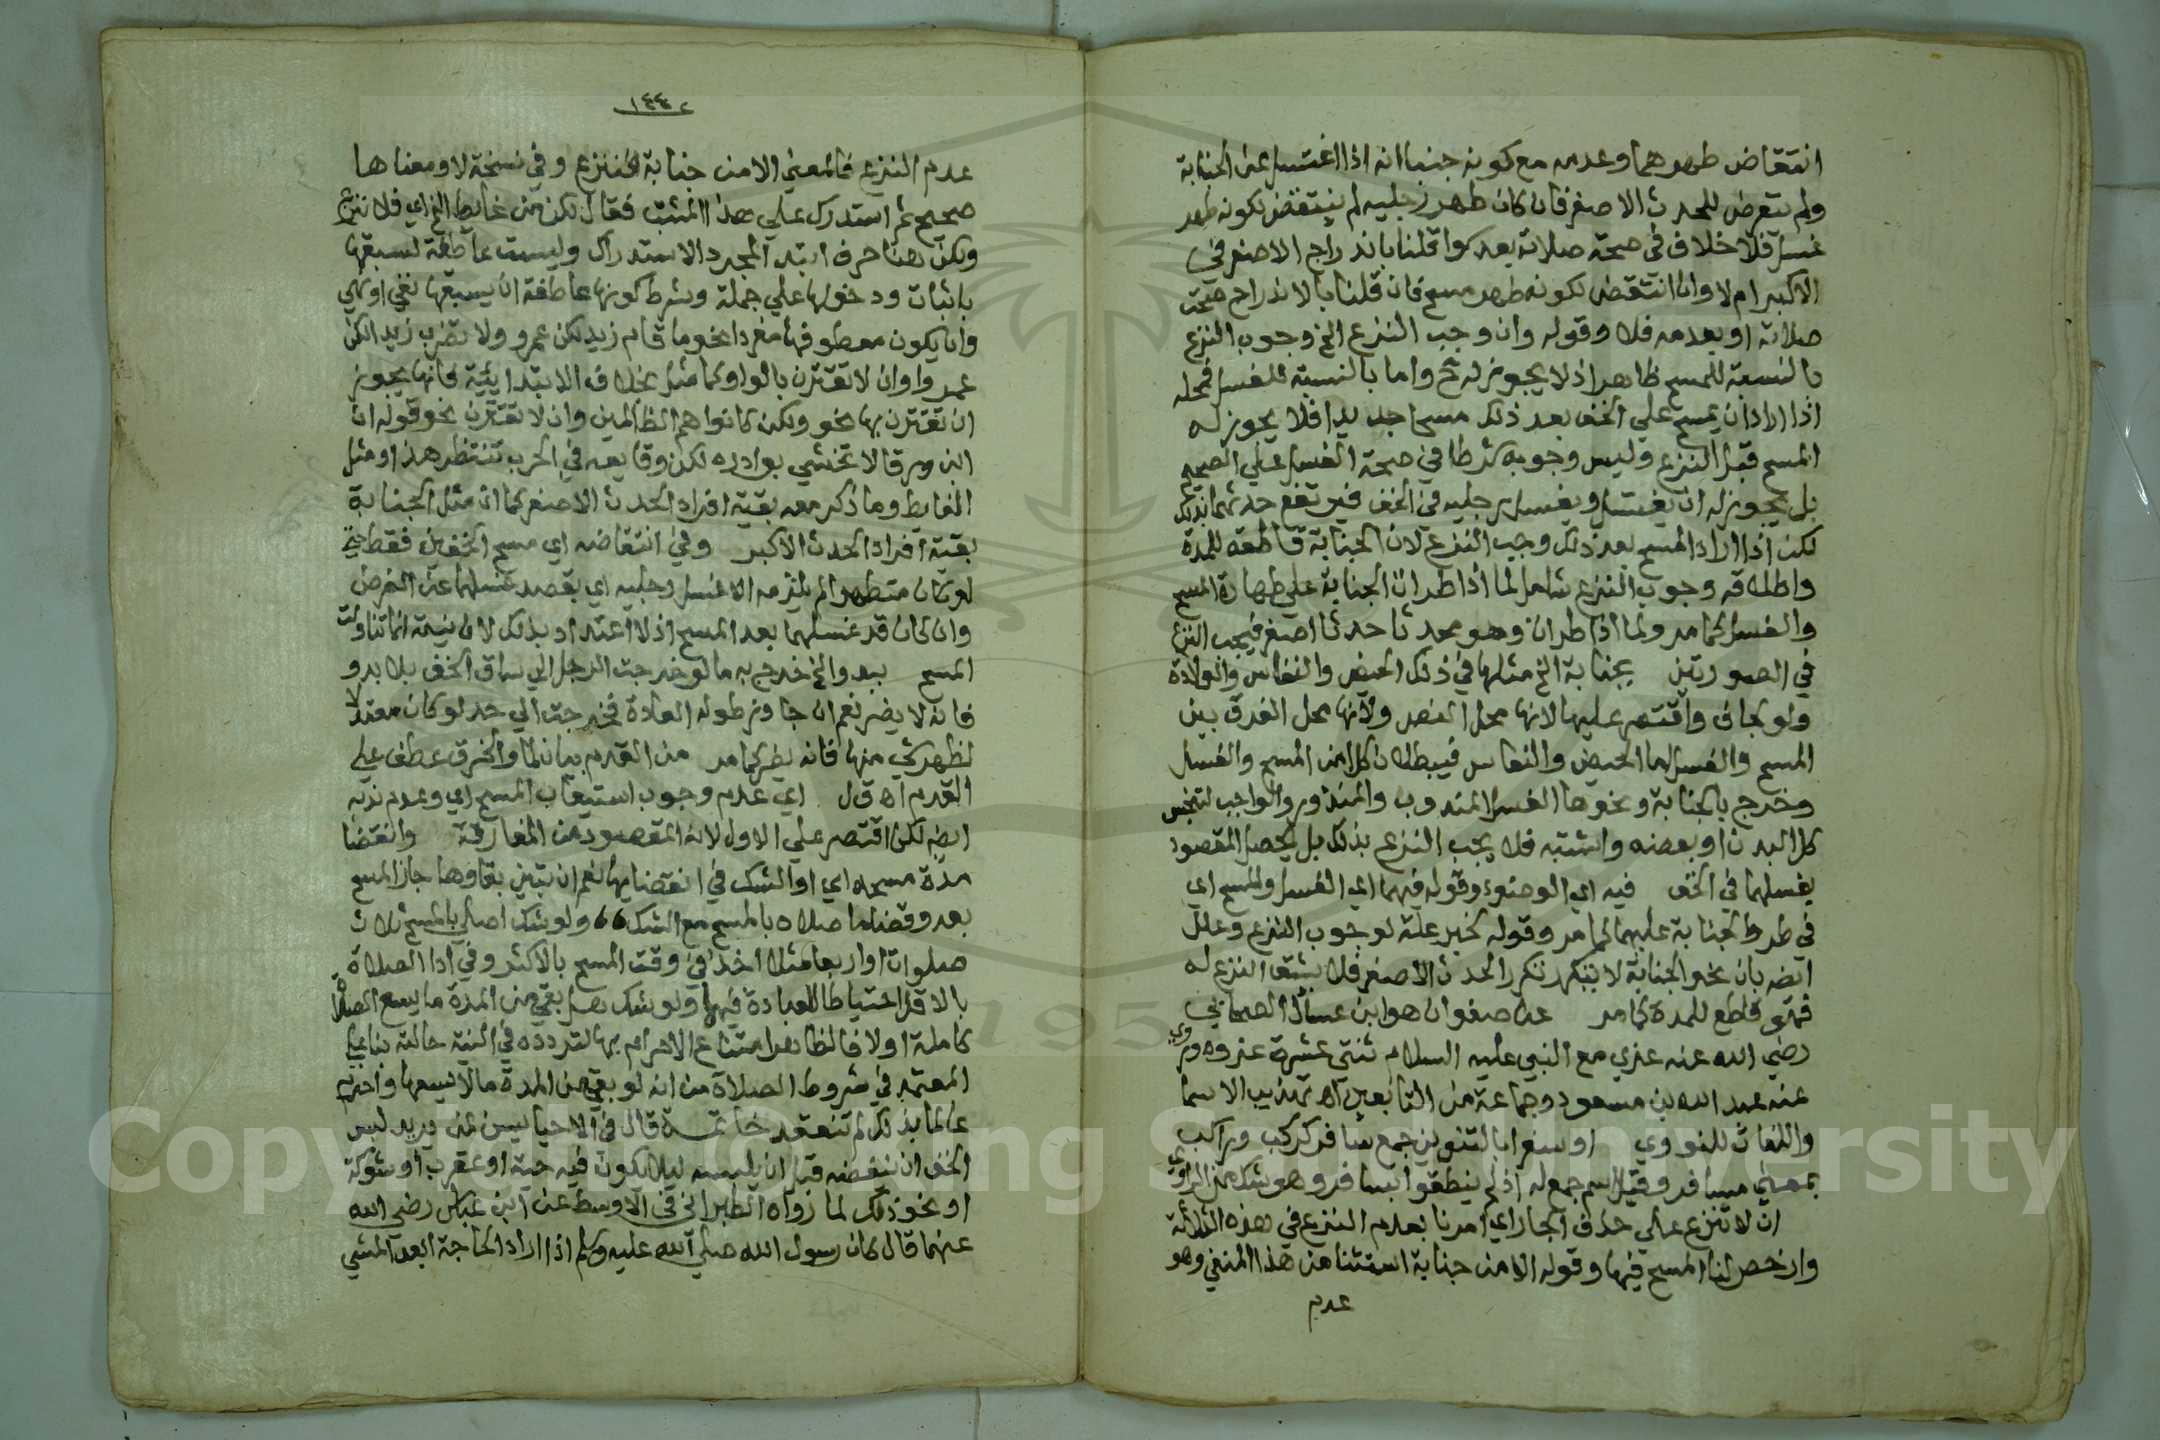 انتقاض طهرهما وعدمه مع كونه جنبا انه اذا اغتسل عن الجنابة
ولم يتعرض للحدث الاصغر فان كان طهر رجليه لم ينتقض لكونه طهر
غسل فلا خلاف في صحة صلاته بعد سواء قلنا باندراج الاصغر في
الاكبر ام لا وان انتقض لكونه طهر مسح فان قلنا بالاندراج صحت
صلاته او بعدمه فلا وقوله وان وجب النزع الخ وجوب النزع
بالنسبة للمسح ظاهر اذ لا يجوز له ح واما بالنسبة للغسل فمحله
اذا اراد ان يمسح علي الخف بعد ذلك مسحا جديدا فلا يجوز له
المسح قبل النزع وليس وجوبه شرطا في صحة الغسل علي الصحيح
بل يجوز له ان يغتسل ويغسل رجليه في الخف فيرتفع حدثهما بذلك
لكن اذا اراد المسح بعد ذلك وجب النزع لان الجنابة قاطعة للمدة
واطلاقه وجوب النزع شامل لما اذا طرات الجنابة علي طهارة المسح
والغسل كما مر ولما اذا طرات وهو محدث حدثا اصغر فيجب النزع
في الصورتين بجنابة الخ مثلها في ذلك الحيض والنفاس والولادة
ولو بجاف واقتصر عليها لانها محل النص ولانها محل الفرق بين
المسح والغسل اما الحيض والنفاس فيبطلان كلا من المسح والغسل
وخرج بالجنابة ونحوها الغسل المندوب والمنذور والواجب لتنجس
كل البدن او بعضه واشتبه فلا يجب النزع بذلك بل يحصل المقصود
بغسلهما في الخف فيه اي الوضوء وقوله فيهما اي الغسل والمسح اي
في طرو الجنابة عليهما كما مر وقوله لخبر علة لوجوب النزع وعلل
ايضا بان نحو الجنابة لا يتكرر تكرر الحدث الاصغر فلا يشق النزع له
فهو قاطع للمدة كما مر عن صفوان هو ابن عسال الصحابي
رضي الله عنه غزي مع النبي عليه السلام ثنتي عشرة غزوة وروي
عنه عبد الله بن مسعود وجماعة من التابعين اه تهذيب الاسما
واللغات للنووي او سفرا بالتنوين جمع سافر كركب وراكب
بمعني مسافر وقيل اسم جمع له اذ لم ينطقوا بسافر وهو شك من الراوي
ان لا ننزع علي حذف الجار اي امرنا بعدم النزع في هذه الثلاثة
وارخص لنا المسح فيها وقوله الا من جنابة استثنا من هذا المنفي وهو
عدم
١٤٤
عدم النزع فالمعني الا من جنابة فننزع وفي نسخة لا ومعناها
صحيح ثم استدرك علي هذا المثبت فقال لكن من غايط الخ اي فلا ننزع
ولكن هنا حرف ابتدا لمجرد الاستدراك وليست عاطفة لسبقها
باثبات ودخولها علي جملة وشرط كونها عاطفة ان يسبقها نفي او نهي
وان يكون معطوفها مفردا نحو ما قام زيد لكن عمرو ولا تضرب زيد لكن
عمروا وان لا تقترن بالواو كما مثل بخلاف الابتدايية فانها يجوز
ان تقترن بها نحو ولكن كانوا هم الظالمين وان لا تقترن نحو قوله ان
ابن ورقا لا تخشي بوادره لكن وقايعه في الحرب تنتظر هذا ومثل
الغايط وما ذكر معه بقية افراد الحدث الاصغر كما ان مثل الجنابة
بقية افراد الحدث الاكبر وفي انتقاضه اي مسح الخفين فقط حتي
لو كان متطهرا لم يلزمه الا غسل رجليه اي بقصد غسلهما عن الفرض
وان كان قد غسلهما بعد المسح اذ لا اعتداد بذلك لان نيته انما تناولت
المسح ببدو الخ خرج به ما لو خرجت الرجل الي ساق الخف بلا بدو
فانه لا يضر نعم ان جاوز طوله العادة فخرجت الي حد لو كان معتدلا
لظهر شي منها فانه يضر كما مر من القدم بيان لما والخرق عطف علي
القدم اه ق ل اي عدم وجوب استيعاب المسح اي وعدم ندبه
ايضا لكن اقتصر علي الاول لانه المقصود من المفارقة وانقضا
مدة مسحه اي او الشك في انقضايها نعم ان تبين بقاوها جاز المسح
بعد وقضا ما صلاه بالمسح مع الشك ولو شك اصلي بالمسح ثلاث
صلوات او اربعا مثلا اخذ في وقت المسح بالاكثر وفي ادا الصلاة
بالاقل احتياطا للعبادة فيهما ولو شك هل بقي من المدة ما يسع الصلاة
كاملة او لا فالظاهر امتناع الاحرام بها لتردده في النية حالة بنا علي
المعتمد في شروط الصلاة من انه لو بقي من المدة ما لا يسعها واحرم
عالما بذلك لم تنعقد خاتمة قال في الاحيا يسن لمن يريد لبس
الخف ان ينفضه قبل ان يلبسه ليلا يكون فيه حية او عقرب او شوكة
او نحو ذلك لما رواه الطبراني في الاوسط عن ابن عباس رضي الله
عنهما قال كان رسول الله صلي الله عليه وسلم اذا اراد الحاجة ابعد المشي
Copyright © King Saud University
1957